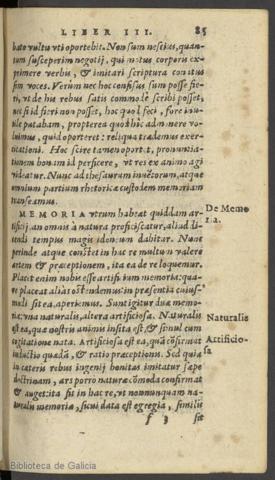 LIBER III. 85
bato vultu vti oportebit. Non sum nescius, quan-
tum susceperim negotij, qui motus corporis ex-
primere verbis, & imitari scriptura conatus
sim voces. Verum nec hoc confisus sum posse fie-
ri, vt de his rebus satis commodè scribi posset,
nec si id fieri non posset, hoc quod feci, fore inu-
tile putabam, propterea quòd hîc admonere vo-
luimus, quid oporteret: reliqua trademus exer-
citationi. Hoc scire tamen oportet, pronuntia-
tionem bonam id perficere, vt res ex animo agi
videatur. Nunc ad thesaurum inuentorum, atque
omnium partium rhetoricæ custodem memoriam
transeamus.
MEMORIA vtrum habeat quiddam ar-
De Memo
ria.
tificij, an omnis à natura proficiscatur, aliud di-
cendi tempus magis idoneum dabitur. Nunc
perinde atque constet in hac re multum valere
artem & præceptionem, ita ea de re loquemur.
Placet enim nobis esse artificium memoriæ: qua-
re placeat aliàs ostendemus: in præsentia cuius-
modi sit ea, aperiemus. Sunt igitur duæ memo-
riæ: vna naturalis, altera artificiosa. Naturalis
Naturalis
est ea, quæ nostris animis insita est, & simul cum
cogitatione nata. Artificiosa est ea, quã cõfirmat
Artificio-
sa
inductio quædã, & ratio præceptionis. Sed quia
in cæteris rebus ingenij bonitas imitatur sæpe
doctrinam, ars porro naturæ cõmoda confirmat
& auget: ita fit in hac re, vt nonnunquam na-
turalis memoria, si cui data est egregia, similis
f 3 sit
Biblioteca de Galicia